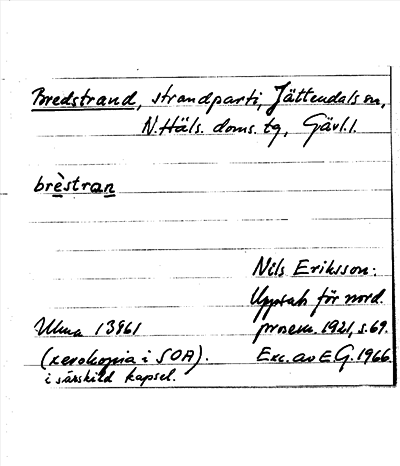 Bredstrand, strandparti, Jättendals sn,
N. Häls. doms. tg, Gävl. l.
brèstran
Nils Eriksson:
Uppsats för nord.
prosem. 1921, s. 69.
Exc. av E G. 1966.
Ulma 13961
(xerokopia i SOA).
i särskild kapsel.